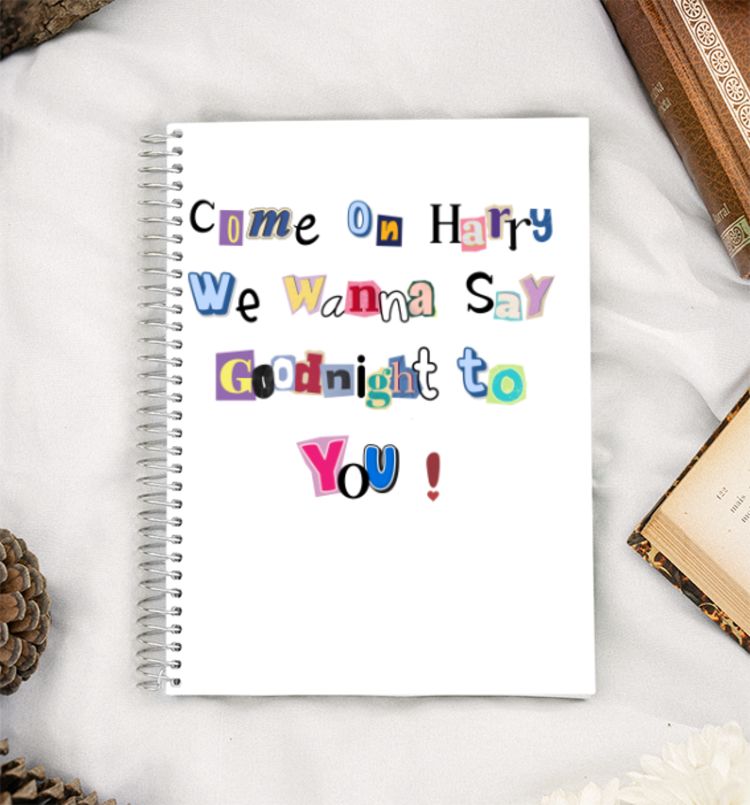 Come on Harry
We Wanna Say
Goodnight to
YoU !
122
mais